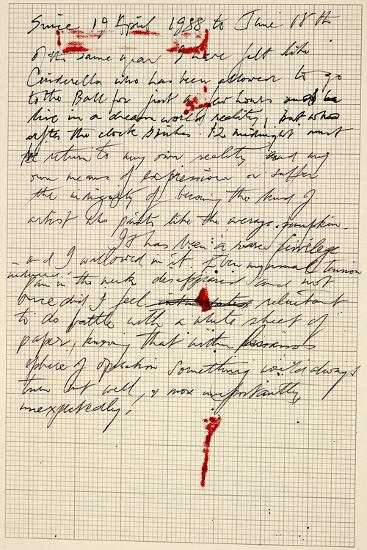 Since 19 April 1988 to June 18th
of the same year I have felt like
Cinderella who has been allowed to go
to the Ball for just a few hours and
live in a dream world reality, but who
after the clock strikes 12 midnight must
return to my own reality and my
own means of expression or suffer
the indignity of becoming the kind of
artist who paints like the average pumpkin.
It has been a rare privilege
and I wallowed in it. Even my normal tension
pain in the neck disappeared and not
once did I feel reluctant
to do battle with a white sheet of
paper, knowing that within
sphere of operation something would always
turn out well, & more importantly
unexpectedly.